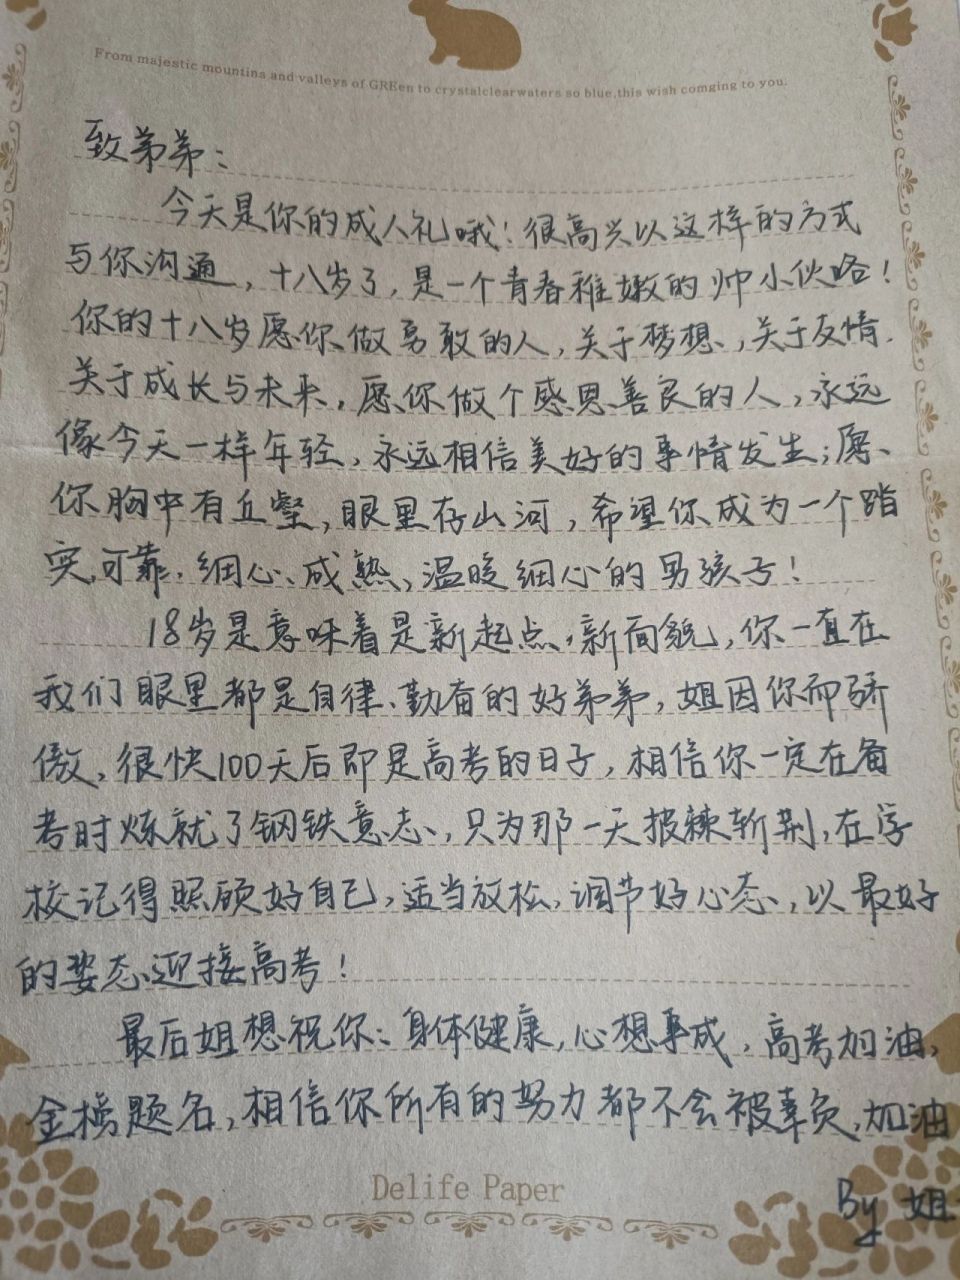 From majestic mountina and valleys of GREen to crystalclearwaters so blue,this wish comging to you.
致弟弟：
今天是你的成人礼哦！很高兴以这样的方式
与你沟通，十八岁了，是一个青春稚嫩的帅小伙咯！
你的十八岁愿你做勇敢的人，关于梦想，关于友情.
关于成长与未来，愿你做个感恩善良的人，永远
像今天一样年轻，永远相信美好的事情发生；愿
你胸中有丘壑，眼里存山河，希望你成为一个踏
实,可靠，细心、成熟，温暖细心的男孩子！
18岁是意味着是新起点，新面貌，你一直在
我们眼里都是自律、勤奋的好弟弟，姐因你而骄
傲，很快100天后即是高考的日子，相信你一定在备
考时炼就了钢铁意志，只为那一天披棘斩荆，在学
校记得照顾好自己，适当放松，调节好心态，以最好
的姿态迎接高考！
最后姐想祝你：身体健康，心想事成，高考加油，
金榜题名，相信你所有的努力都不会被辜负，加油
Delife Paper
By 姐